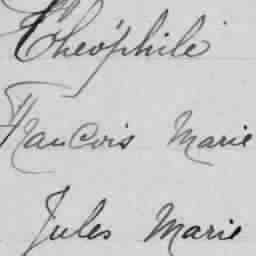 Théophile
Francois Marie
Jules Marie